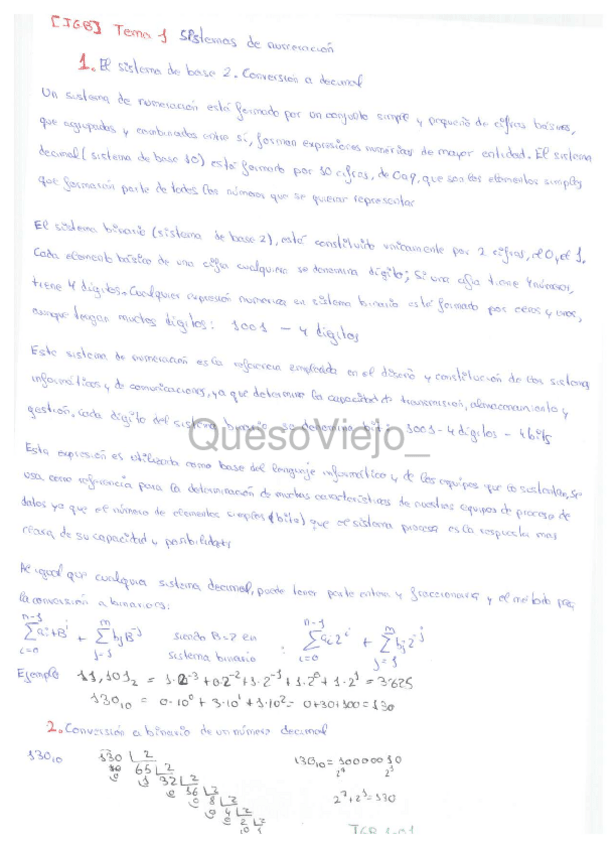 [IGB] Tema 1 Sistemas de numeración
1. El sistema de base 2. Conversión a decimal
Un sistema de numeración está formado por un conjunto simple y pequeño de cifras básicas,
que agrupadas y combinadas entre sí, forman expresiones numéricas de mayor entidad. El sistema
decimal (sistema de base 10) está formado por 10 cifras, de 0 a 9, que son los elementos simples
que formarán parte de todos los números que se quieran representar
El sistema binario (sistema de base 2), está constituido unicamente por 2 cifras, el 0 y el 1.
Cada elemento básico de una cifra cualquiera se denomina dígito; Si una cifra tiene 4 números,
tiene 4 dígitos. Cualquier expresión numérica en sistema binario está formado por ceros y unos,
aunque tengan muchos dígitos: 1001 - 4 dígitos
Este sistema de numeración es la referencia empleada en el diseño y constitución de los sistemas
informáticos y de comunicaciones, ya que determina la capacidad de transmisión, almacenamiento y
gestión, cada dígito del sistema binario se denomina bit: 1001 - 4 dígitos - 4 bits
QuesoViejo_
Esta expresión es utilizada como base del lenguaje informático y de los equipos que lo sustentan, se
usa como referencia para la determinación de muchas características de nuestros equipos de proceso de
datos ya que el número de elementos simples (bits) que el sistema procesa es la respuesta mas
clara de su capacidad y posibilidades
Al igual que cualquier sistema decimal, puede tener parte entera y fraccionaria y el método para
la conversión a binario es:
n-1 Σ i=0 ai·B^i + m Σ j=1 bj B^-j siendo B=2 en sistema binario : n-1 Σ i=0 ai 2^i + m Σ j=1 bj 2^-j
Ejemplo 11,101₂ = 1·2^-3 + 0·2^-2 + 1·2^-1 + 1·2^0 + 1·2^1 = 3'625
130₁₀ = 0·10^0 + 3·10^1 + 1·10^2 = 0+30+100 = 130
2. Conversión a binario de un número decimal
130₁₀ 130 2 130₁₀ = 10000010
65 2 2^7 2^1
1 32 2
0 16 2 2^7+2^1=130
0 8 2
0 4 2
0 2 2
0 1